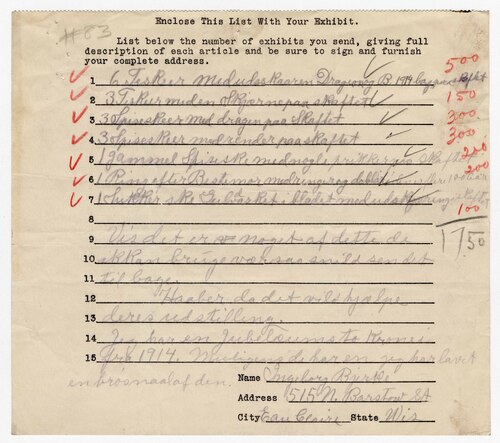 #83
Enclose This List With Your Exhibit.
List below the number of exhibits you send, giving full
description of each article and be sure to sign and furnish
your complete address.
500
1 6 Teskeer med udsskaaren B 1914
150
2 3 Teskeer med en Stjerne paa skaftet
300
3 3 Spiseskeer med dragen paa Skaftet
300
4 3 Spiseskeer med render paa skaftet
200
5 1 gammel Spiseske med nogle prikker paa Skaftet
200
6 1 Ring efter Bestemor med ring og
7 1 Sukker ske bladet med
100
8
1750
9 Vis det er noget af dette de
10 kan bruge værsaa snild sen det
11 tilbage.
12 Haaber da det vil hjælpe
13 deres udstilling.
14 Jeg har en Jubelæums to Kroner
15 fra 1914. de har en jeg har lavet
en af den.
Name Ingeborg
Address 515 N. Barstow St
City Eau Claire State Wis